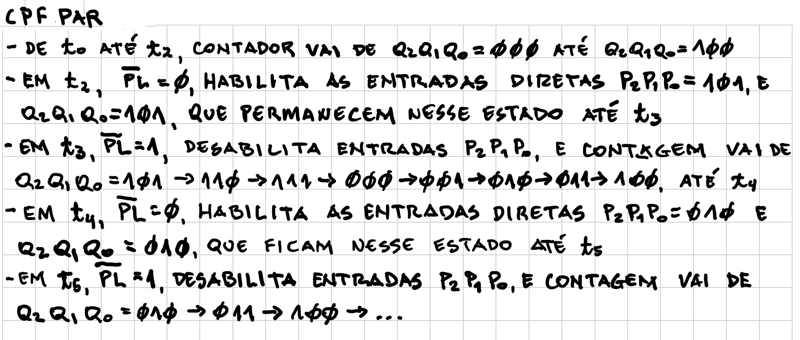 CPF PAR
- DE t₀ ATÉ t₂, CONTADOR VAI DE Q₂Q₁Q₀ = 000 ATÉ Q₂Q₁Q₀ = 100
- EM t₂, P̅L̅ = 0, HABILITA AS ENTRADAS DIRETAS P₂P₁P₀ = 101, E
Q₂Q₁Q₀ = 101, QUE PERMANECEM NESSE ESTADO ATÉ t₃
- EM t₃, P̅L̅ = 1, DESABILITA ENTRADAS P₂P₁P₀, E CONTAGEM VAI DE
Q₂Q₁Q₀ = 101 → 110 → 111 → 000 → 001 → 010 → 011 → 100, ATÉ t₄
- EM t₄, P̅L̅ = 0, HABILITA AS ENTRADAS DIRETAS P₂P₁P₀ = 010 E
Q₂Q₁Q₀ = 010, QUE FICAM NESSE ESTADO ATÉ t₅
- EM t₅, P̅L̅ = 1, DESABILITA ENTRADAS P₂P₁P₀, E CONTAGEM VAI DE
Q₂Q₁Q₀ = 010 → 011 → 100 → ...